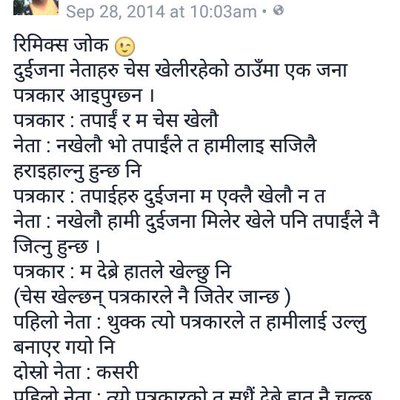 Sep 28, 2014 at 10:03am •
रिमिक्स जोक 😉
दुईजना नेताहरु चेस खेलीरहेको ठाउँमा एक जना
पत्रकार आइपुग्छन ।
पत्रकार : तपाईं र म चेस खेलौ
नेता : नखेलौ भो तपाईंले त हामीलाइ सजिलै
हराइहाल्नु हुन्छ नि
पत्रकार : तपाईहरु दुईजना म एक्लै खेलौ न त
नेता : नखेलौ हामी दुईजना मिलेर खेले पनि तपाईंले नै
जित्नु हुन्छ ।
पत्रकार : म देब्रे हातले खेल्छु नि
(चेस खेल्छन् पत्रकारले नै जितेर जान्छ )
पहिलो नेता : थुक्क त्यो पत्रकारले त हामीलाई उल्लु
बनाएर गयो नि
दोस्रो नेता : कसरी
पहिलो नेता : त्यो पत्रकारको त सधैं देब्रे हात नै चल्छ